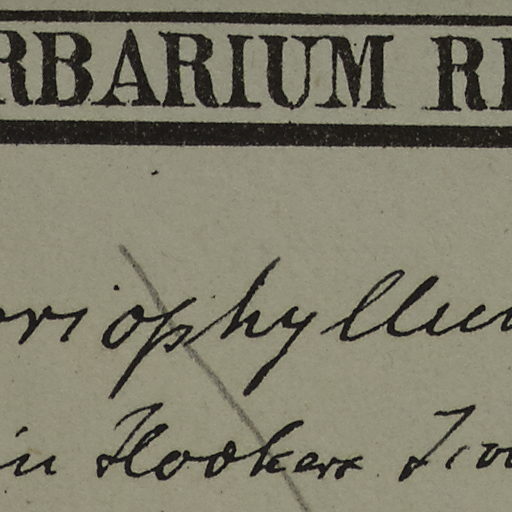 RBARIUM RE
oriophyllum
in Hookers